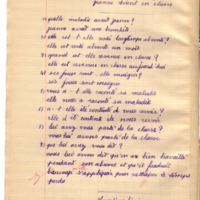 jeanne vient en classe
1) quelle maladie avait jeanne?
jeanne avait une bronchite
2) elle est t. elle été longtemps absente?
elle est été absente un mois
3) quand est elle revenue en classe?
elle est revenue en classe aujourd'hui
4) ses joues sont elle maigres?
ses joues sont maigres
5) a. t. elle raconté sa maladie
elle nous a raconté sa maladie
6) a. t. elle été contente de vous revoir?
elle a été contente de nous revoir
7) lui avez vous parlé de la classe?
nous lui avons parlé de la classe
8) que lui avez vous dit?
nous lui avons dit qu'on a bien travaillé
pendant son absence et qu'il faudrait
beaucoup s'appliquer pour rattraper le temps
perdu